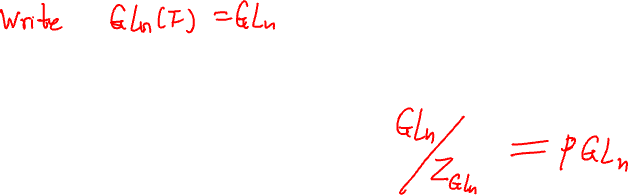 Write GLn(F) = GLn
GLn/ZGLn = PGLn